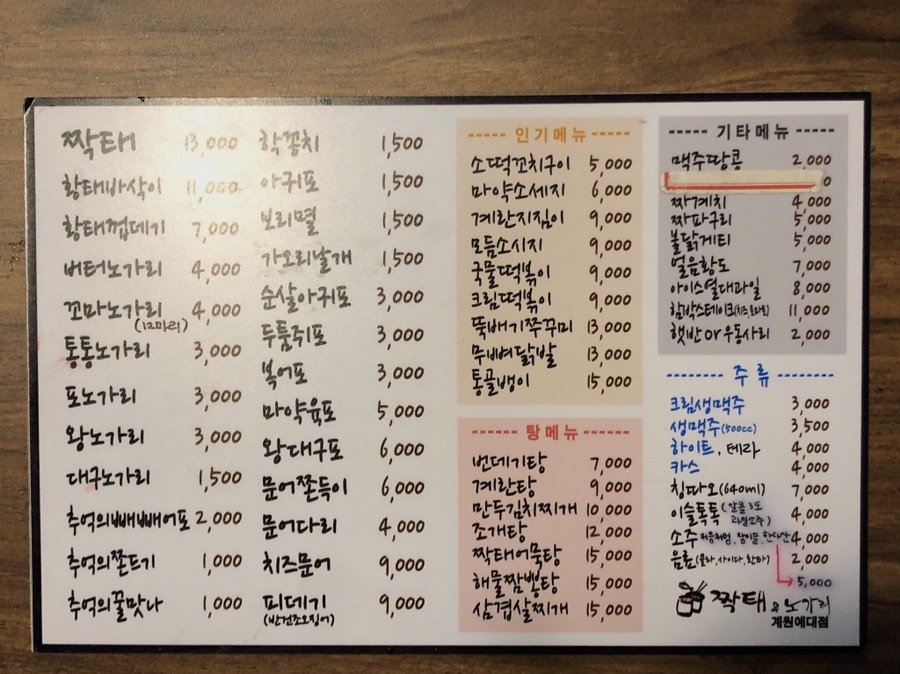 짝태 13,000
황태바삭이 11,000
황태껍데기 7,000
버터노가리 4,000
꼬마노가리 4,000
(12마리)
통통노가리 3,000
포노가리 3,000
왕노가리 3,000
대구노가리 1,500
추억의빼빼어포 2,000
추억의쫀드기 1,000
추억의꿀맛나 1,000
학꽁치 1,500
아귀포 1,500
보리멸 1,500
가오리날개 1,500
순살아귀포 3,000
두툼쥐포 3,000
복어포 3,000
마약육포 5,000
왕대구포 6,000
문어쫀득이 6,000
문어다리 4,000
치즈문어 9,000
피데기 9,000
(반건조오징어)
----- 인기메뉴 -----
소떡꼬치구이 5,000
마약소세지 6,000
계란지짐이 9,000
모듬소시지 9,000
국물떡볶이 9,000
크림떡볶이 9,000
뚝배기쭈꾸미 13,000
무뼈닭발 13,000
통골뱅이 15,000
----- 탕메뉴 -----
번데기탕 7,000
계란탕 9,000
만두김치찌개 10,000
조개탕 12,000
짝태어묵탕 15,000
해물짬뽕탕 15,000
삼겹살찌개 15,000
----- 기타메뉴 -----
맥주땅콩 2,000
0
짜계치 4,000
짜파구리 5,000
불닭게티 5,000
얼음황도 7,000
아이스열대과일 8,000
함박스테이크 11,000
햇반or우동사리 2,000
------- 주류 -------
크림생맥주 3,000
생맥주(500cc) 3,500
하이트, 테라 4,000
카스 4,000
칭따오(640ml) 7,000
이슬톡톡(알콜3도 과일소주) 4,000
소주 처음처럼, 참이슬, 한라산 4,000
음료(콜라,사이다,환타) 2,000
5,000
짝태&노가리
계원예대점